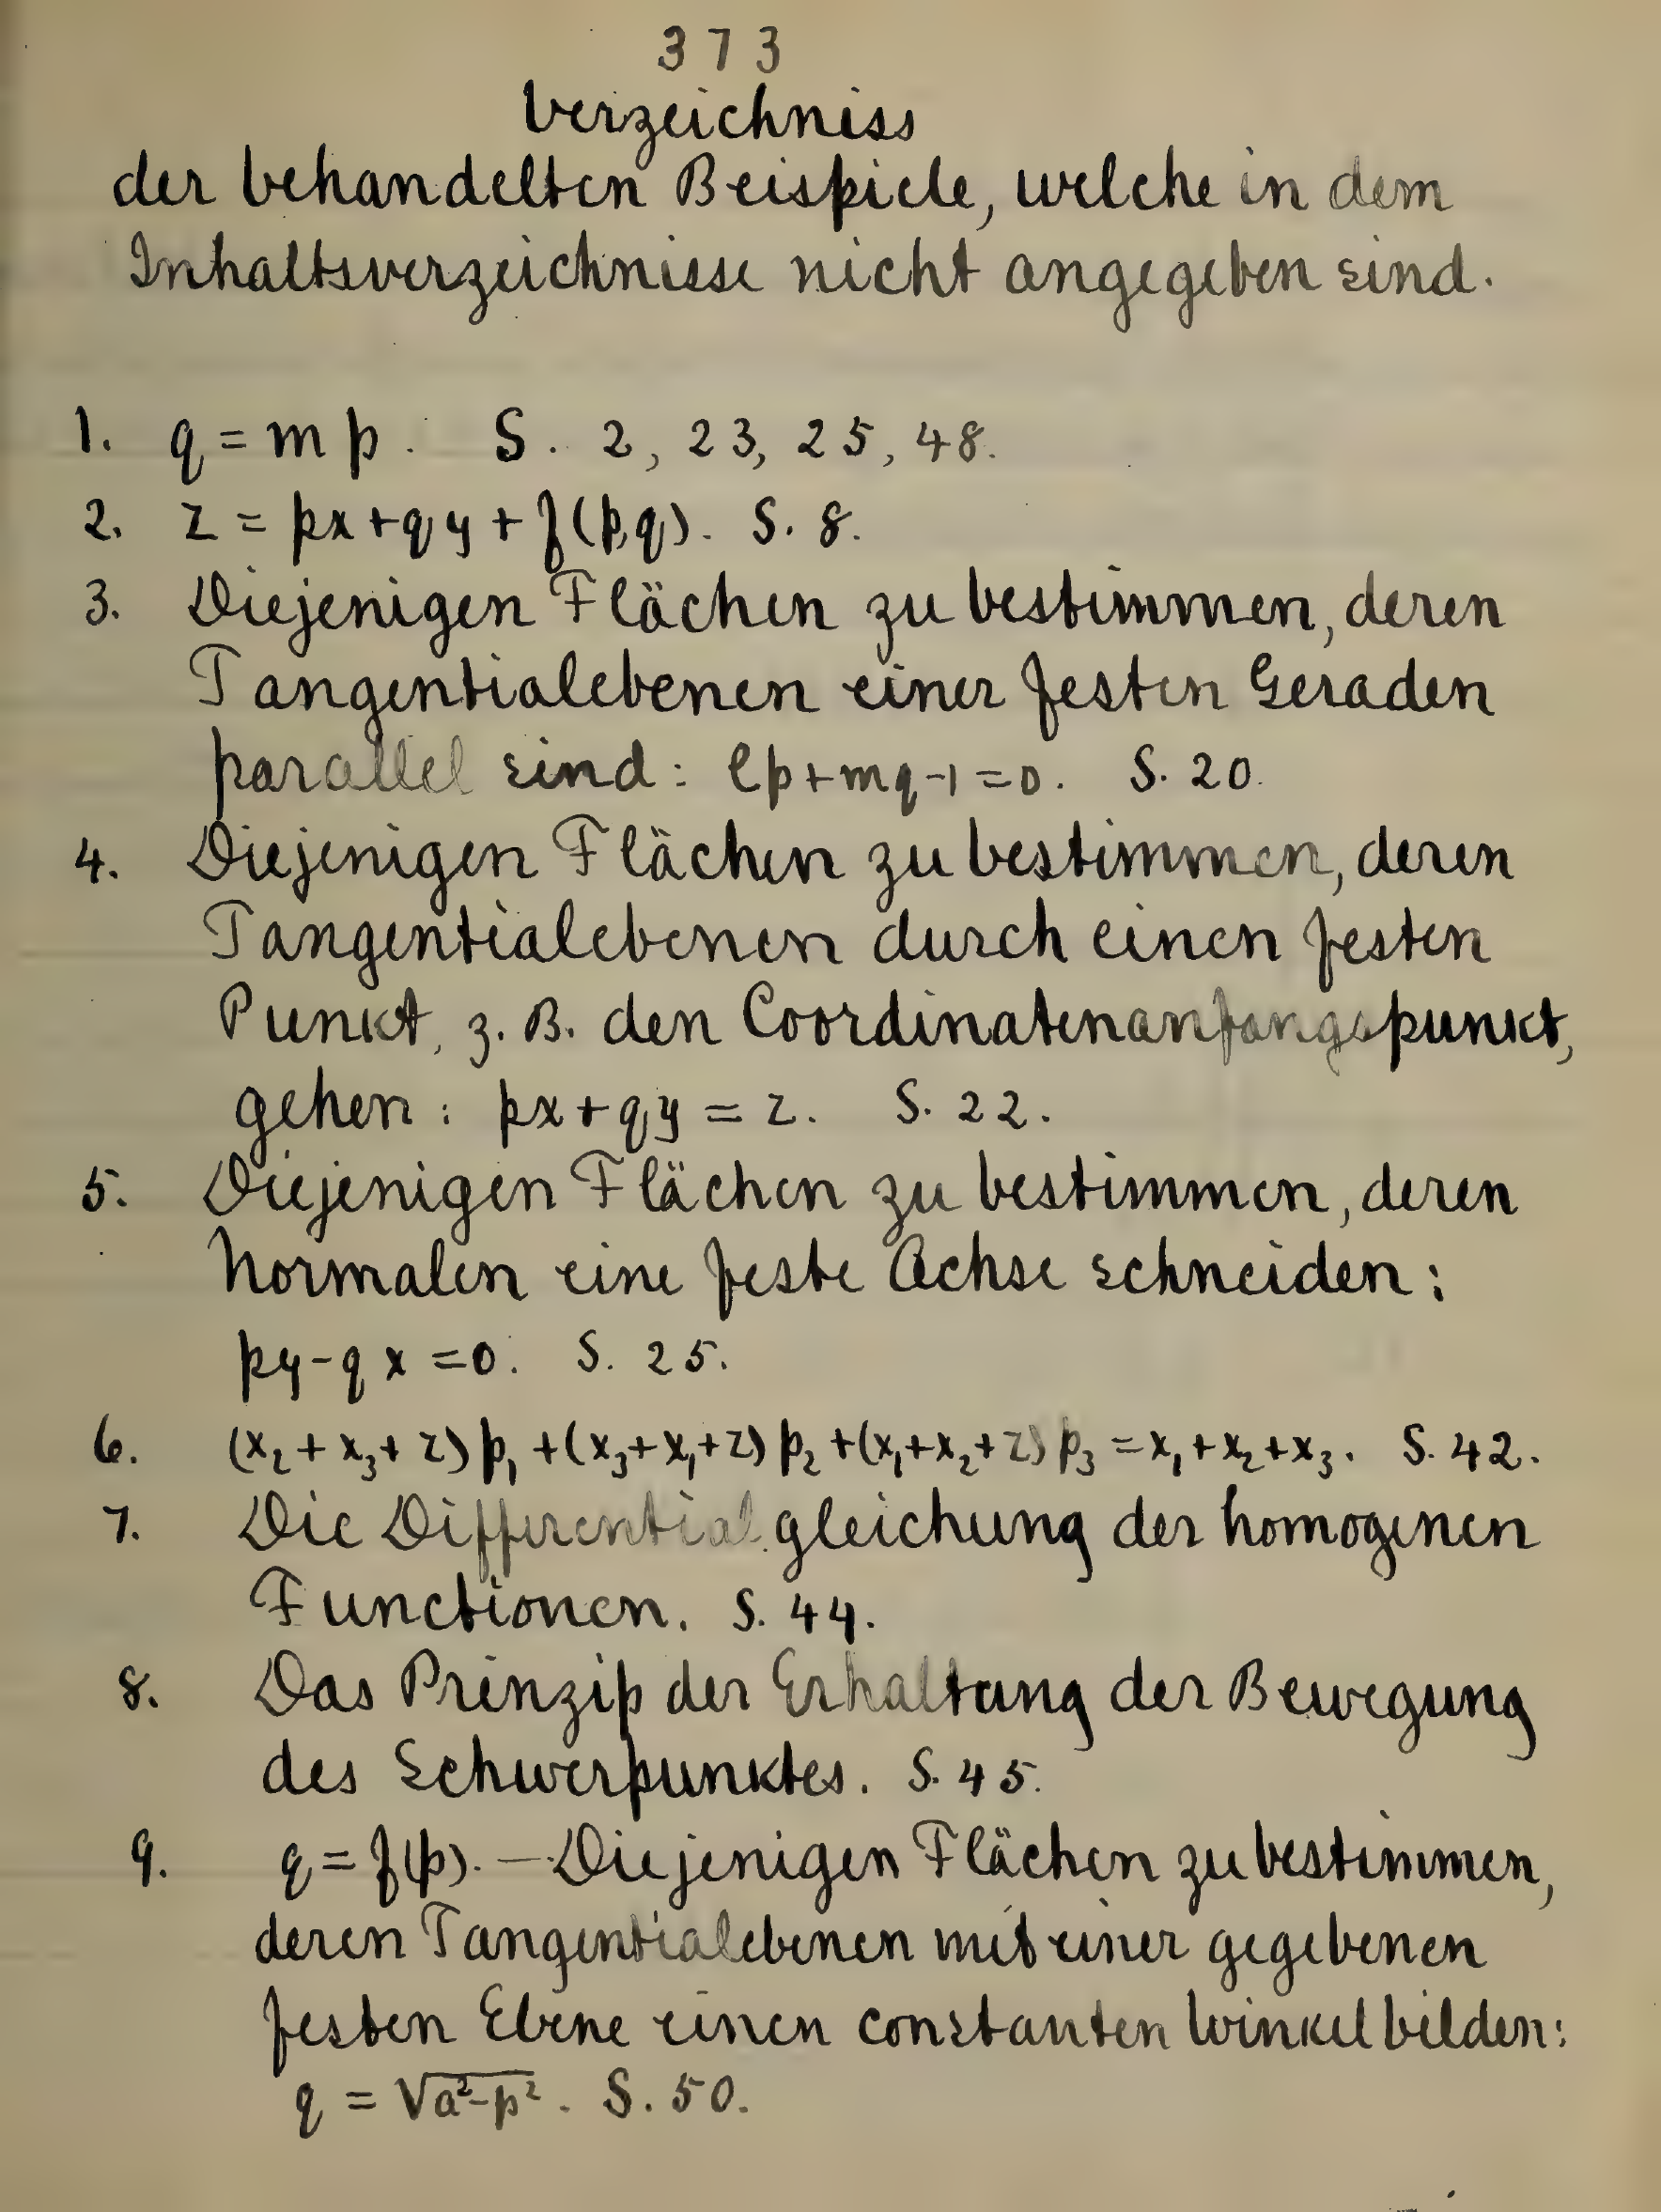 373
Verzeichniss
der behandelten Beispiele, welche in dem
Inhaltsverzeichnisse nicht angegeben sind.
1. q = mp. S. 2, 23, 25, 48.
2. z = px + qy + f(p,q). S. 8.
3. Diejenigen Flächen zu bestimmen, deren
Tangentialebenen einer festen Geraden
parallel sind: lp + mq - 1 = 0. S. 20.
4. Diejenigen Flächen zu bestimmen, deren
Tangentialebenen durch einen festen
Punkt, z. B. den Coordinatenanfangspunkt,
gehen: px + qy = z. S. 22.
5. Diejenigen Flächen zu bestimmen, deren
Normalen eine feste Achse schneiden:
py - qx = 0. S. 25.
6. (x₂ + x₃ + z) p₁ + (x₃ + x₁ + z) p₂ + (x₁ + x₂ + z) p₃ = x₁ + x₂ + x₃. S. 42.
7. Die Differentialgleichung der homogenen
Functionen. S. 44.
8. Das Prinzip der Erhaltung der Bewegung
des Schwerpunktes. S. 45.
9. q = f(p). — Diejenigen Flächen zu bestimmen,
deren Tangentialebenen mit einer gegebenen
festen Ebene einen constanten Winkel bilden:
q = √(a² - p²). S. 50.